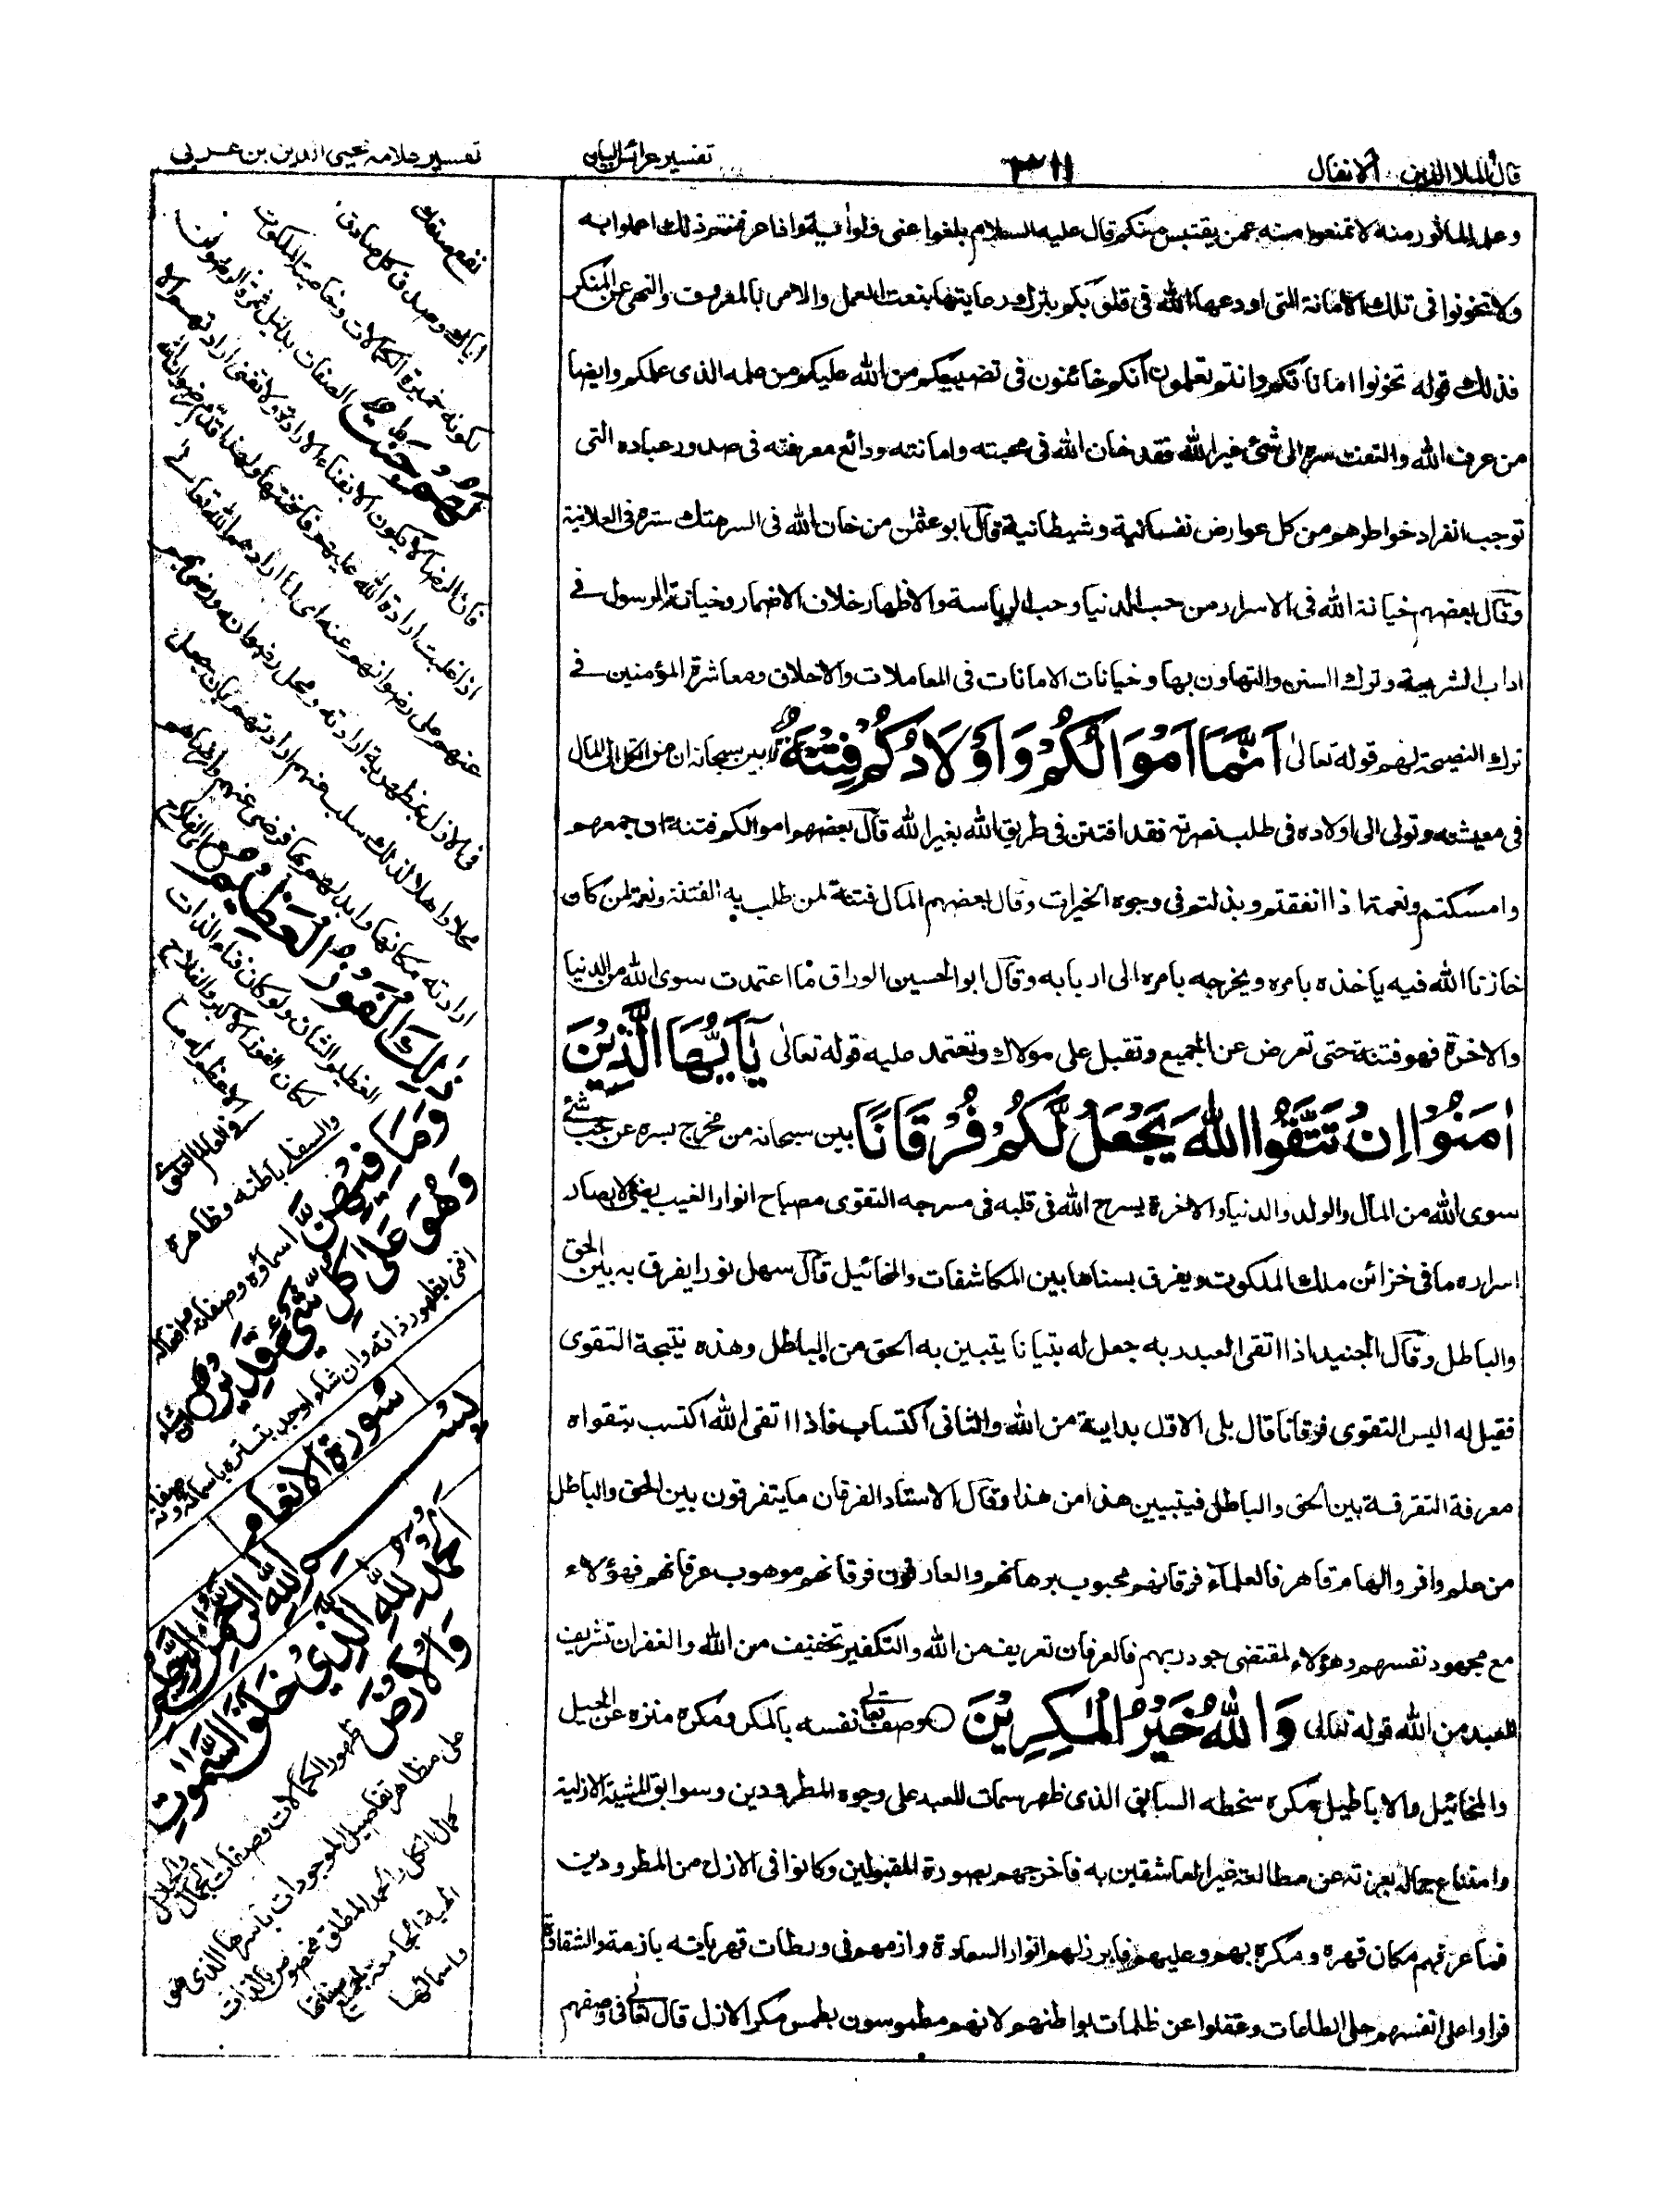 قال الملا الذين الانفال
٣١١
تفسير عرائس البيان
تفسير علامه محيى الدين بن عربى
وعلم المأثور منه لا تمنعوا منه عمن يقتبس منكم قال عليه السلام بلغوا عنى ولو آية اعملوا به
ولا تخونوا فى تلك الامانة التى اودعها الله فى قلوبكم بترك رعايتها بنعت العمل والامر بالمعروف والنهى عن المنكر
فذلك قوله تخونوا اماناتكم وانتم تعلمون انكم خائنون فى تضييعكم من الله عليكم من علمه الذى علمكم وايضا
من عرف الله والتفت سره الى شئ غير الله فقد خان الله فى محبته وامانته ودائع معرفته فى صدور عباده التى
توجب انفراد خواطرهم من كل عوارض نفسانية وشيطانية قال ابو عثمان من خان الله فى السر هتك ستره فى العلانية
وقال بعضهم خيانة الله فى الاسرار من حب الدنيا وحب الرياسة والاظهار خلاف الاضمار وخيانة الرسول فى
اداب الشريعة وترك السنن والتهاون بها وخيانات الامانات فى المعاملات والاخلاق ومعاشرة المؤمنين فى
ترك النصيحة لهم قوله تعالى اَنَّمَا اَمْوَالُكُمْ وَاَوْلَادُكُمْ فِتْنَةٌ بين سبحانه ان من الى المال
فى معيشته وتولى الى اولاده فى طلب نصرته فقد افتتن فى طريق الله بغير الله قال بعضهم اموالكم فتنة ان جمعهم
وامسكتم ونعمة اذا انفقتم وبذلتم فى وجوه الخيرات وقال بعضهم المال فتنة لمن طلب به الفتنة ونعمة لمن كان
خازنا الله فيه ياخذه بامره ويخرجه بامره الى اربابه وقال ابو الحسين الوراق ما اعتمدت سوى الله من الدنيا
والاخرة فهو فتنة حتى تعرض عن الجميع وتقبل على مولاك وتعتمد عليه قوله تعالى يٰٓاَيُّهَا الَّذِيْنَ
اٰمَنُوْٓا اِنْ تَتَّقُوا اللهَ يَجْعَلْ لَّكُمْ فُرْقَانًا بين سبحانه من مخرج بسره عن شئ
سوى الله من المال والولد والدنيا والاخرة يسرج الله فى قلبه فى مسرجه التقوى مصباح انوار الغيب ابصار
اسراره ما فى خزائن ملك الملكوت ويفرق بسناها بين المكاشفات والمخائيل قال سهل نورا يفرق به بين الحق
والباطل وقال الجنيد اذا اتقى العبد ربه جعل له تبيانا يتبين به الحق من الباطل وهذه نتيجة التقوى
فقيل له اليس التقوى فرقانا قال بلى الاول بداية من الله والثانى اكتساب فاذا اتقى الله اكتسب بتقواه
معرفة التفرقة بين الحق والباطل فيتبين هذا من هذا وقال الاستاد الفرقان ما يتفرقون بين الحق والباطل
من علم وافر والهام قاهر فالعلماء فرقانهم مجبوب برهانهم والعارفون فرقانهم موهوب عرفانهم فهؤلاء
مع مجهود نفسهم وهؤلاء لمقتضى جود ربهم فالعرفان تعريف من الله والتكفير تخفيف من الله والغفران تشريف
للعبد من الله قوله تعالى وَاللهُ خَيْرُ الْمٰكِرِيْنَ ○ وصف تعالى نفسه بالمكر ومكره منزه عن الحيل
والمخائيل والاباطيل مكره سخطه السابق الذى ظهر سمات للعبد على وجوه المطرودين وسوابق المشية الازلية
وامتناع جماله بعزته عن مطالعة غير العاشقين به فاخرجهم بصورة المقبولين وكانوا فى الازل من المطرودين
فما عرفهم مكان قهره ومكره بهم وعليهم فابرز لهم انوار السعادة وازمهم فى ورطات قهرياته بازمة الشقاوة
فراوا على انفسهم حلى الطاعات وغفلوا عن ظلمات بواطنهم لانهم مطموسون بطمس مكر الازل قال تعالى فى وصفهم
نفع صدقك
اياك وصدق كل صادق
لكونه خميرة الكمالات وخاصية الملكوت
لَهُمْ جَنّٰتٌ الصفات بدليل ثمرة الرضوان
فان الرضا لا يكون الا بفناء الارادة ولا تفنى ارادتهم الا
اذا غلبت ارادة الله عليهم
عنهم على رضوانهم عنه اى لما ارادهم الله تعالى
فى الازل بمظهرية ارادته ومحل رضوانه
محلا واهلا لذلك سلب عنهم ارادتهم بان جعل
ارادته مكانها وابدلهم بها فرضى عنهم وارضاهم
ذٰلِكَ الْفَوْزُ الْعَظِيْمُ
العظيم الشان ولو كان فناء الذات
لكان الفوز الاكبر والفلاح
الاعظم له ما
فى العالم العلوى
والسفلى باطنه وظاهره
وَمَا فِيْهِنَّ اسماؤه وصفاته وافعاله
وَهُوَ عَلٰى كُلِّ شَيْءٍ قَدِيْرٌ
افنى بظهور ذاته وان شاء اوجد بتستره باسمائه وصفاته
سورة الانعام
بِسْمِ اللهِ الرَّحْمٰنِ الرَّحِيْمِ
اَلْحَمْدُ لِلّٰهِ الَّذِيْ خَلَقَ السَّمٰوٰتِ
وَالْاَرْضَ ظهور الكمالات وصفات الجمال والجلال
على مظاهر تفاصيل الموجودات باسرها الذى هو
كمال الكل والحمد المطلق مخصوص بالذات
الالهية الجامعة لجميع صفاتها
واسمائها